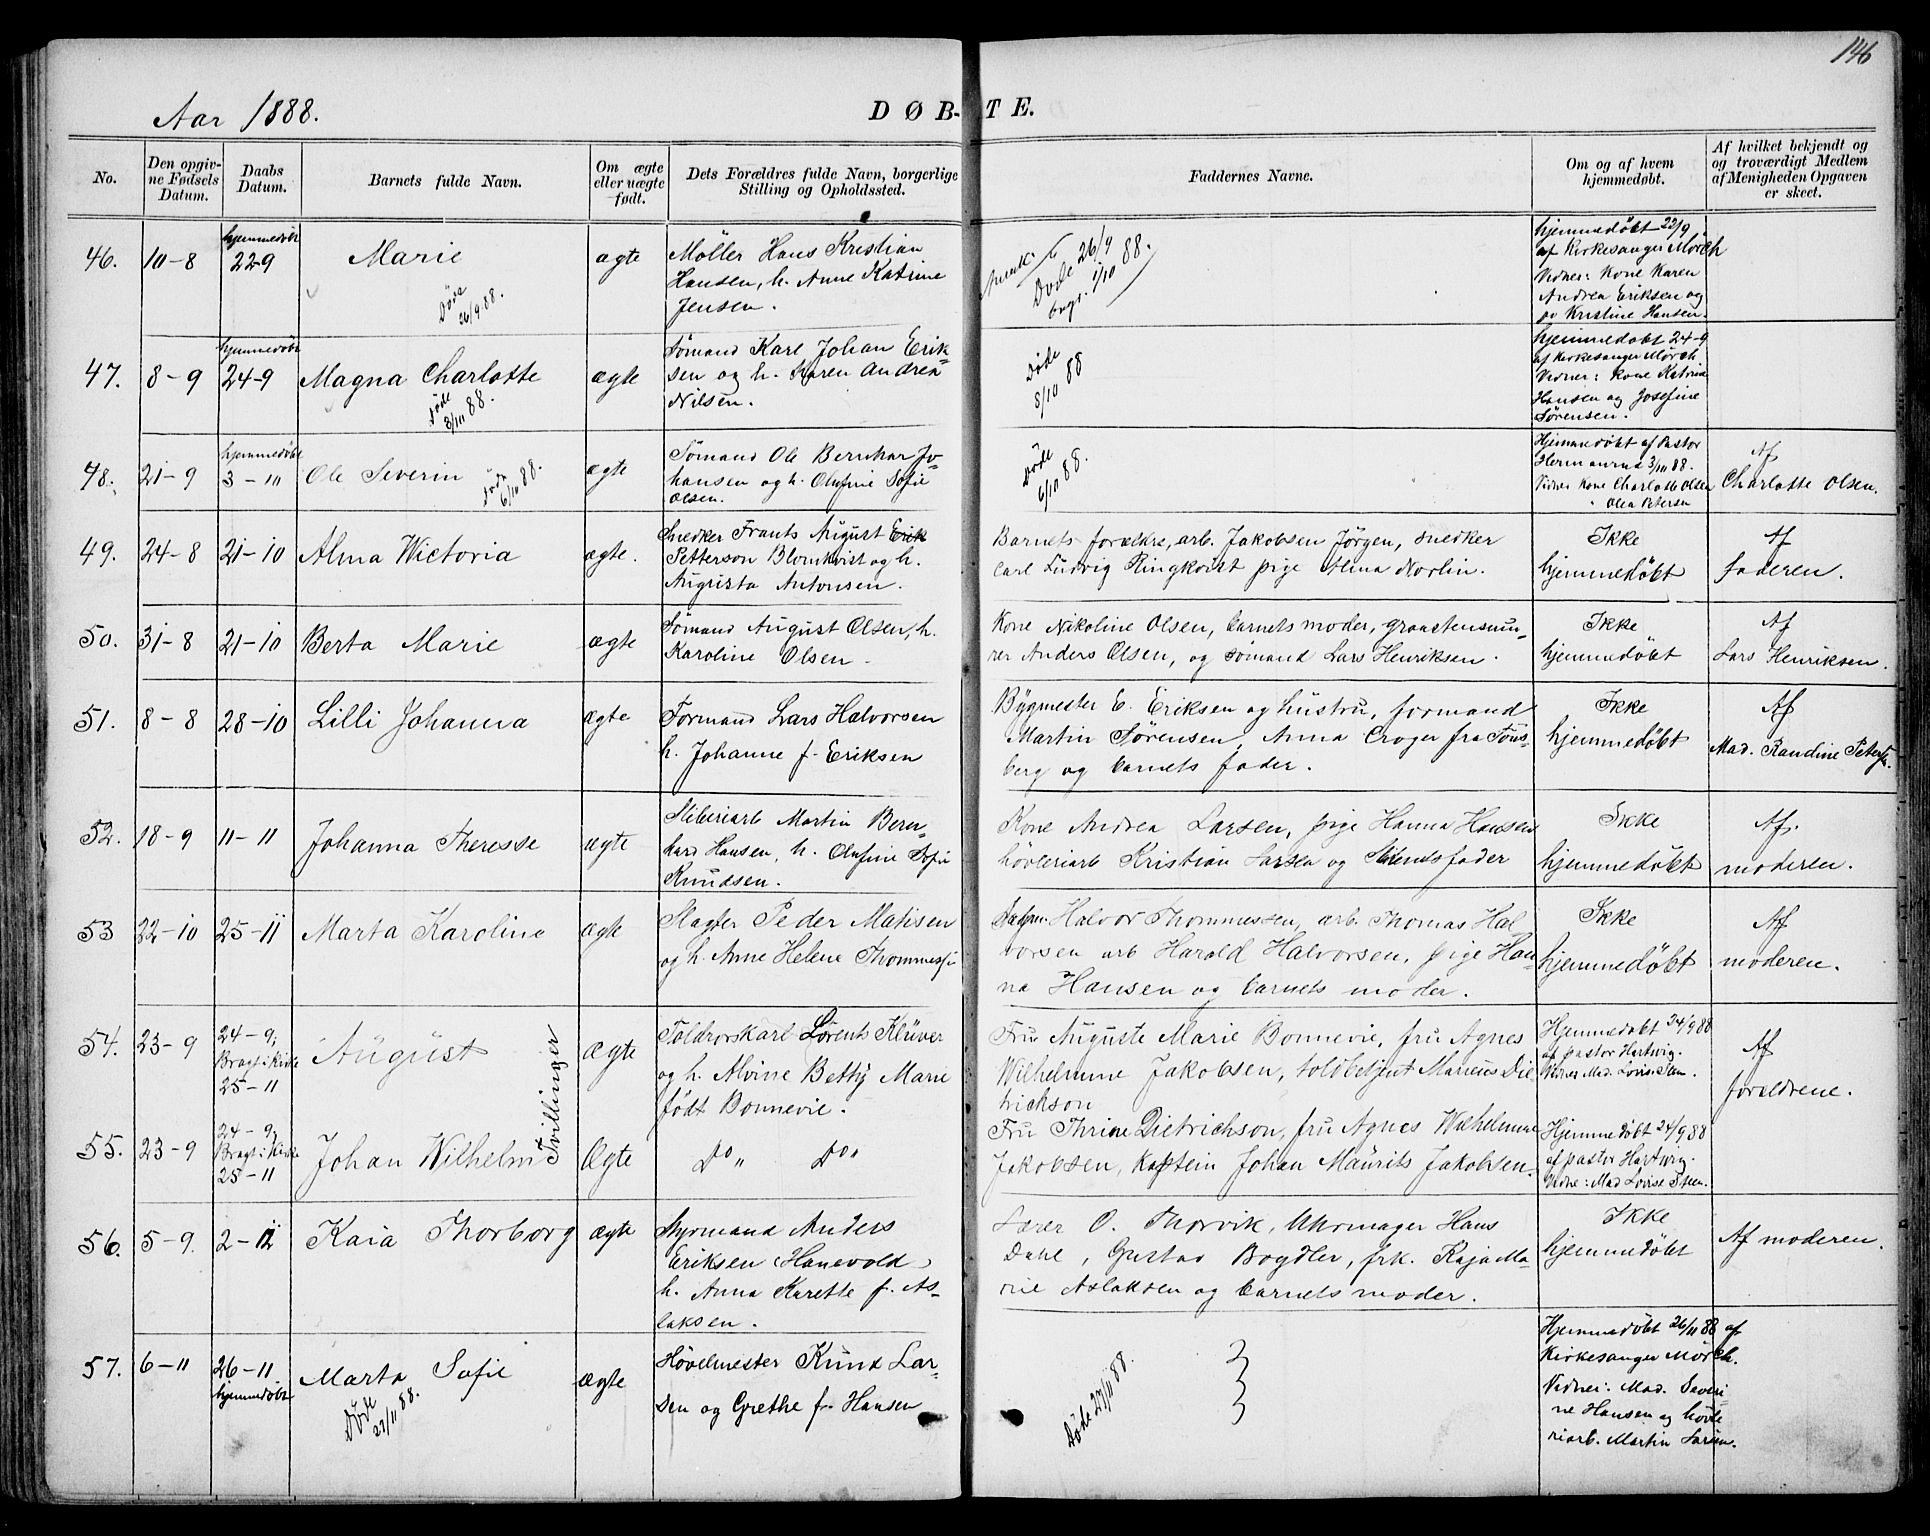 146
Aar 1888.
DØB-TE.
No.
Den opgiv-
ne Fødsels
Datum.
Daabs
Datum.
Barnets fulde Navn.
Om ægte
eller uægte
født.
Dets Forældres fulde Navn, borgerlige
Stilling og Opholdssted.
Faddernes Navne.
Om og af hvem
hjemmedøbt.
Af hvilket bekjendt og
og troværdigt Medlem
af Menigheden Opgaven
er skeet.
46.
10-8
hjemmedøbt
22-9
Marie
Døde
26/9 88.
ægte
Møller Hans Kristian
Hansen, h. Anne Katrine
Jensen.
Døde 26/9
begr. 1/10 88.
hjemmedøbt 22/9
af Kirkesanger Mörch
Vidner: Kone Karen
Andrea Eriksen og
Kristine Hansen.
47.
8-9
hjemmedøbt
24-9
Magna Charlotte
Døde
8/10 88.
ægte
Sømand Karl Johan Erik-
sen og h. Karen Andrea
Nilsen.
Døde
8/10 88
hjemmedøbt 24-9
af Kirkesanger Mörch
Vidner: Kone Katrine
Hansen og Josefine
Sørensen.
48.
21-9
hjemmedøbt
3-10
Ole Severin
Døde
6/10 88.
ægte
Sømand Ole Bernhar Jo-
hansen og h. Olufine Sofie
Olsen.
Døde
6/10 88.
Hjemmedøbt af Pastor
Hermanrud 3/10 88.
Vidner Kone Charlotte Olsen
" Olea Petersen
Af
Charlotte Olsen.
49.
24-8
21-10
Alma Wictoria
ægte.
Snedker Frants August Erik
Petterson Blomkvist og h.
Augusta Antonsen.
Barnets forældre, arb. Jakobsen Jörgen, snedker
Carl Ludvig Ringkvist pige Alma Norlin.
Ikke
hjemmedøbt
Af
faderen.
50.
31-8
21-10
Berta Marie
ægte
Sømand August Olsen, h.
Karoline Olsen.
Kone Nikoline Olsen, barnets moder, graastensmu-
rer Anders Olsen, og sømand Lars Henriksen.
Ikke
hjemmedøbt
Af
Lars Henriksen.
51.
8-8
28-10
Lilli Johanna
ægte
Formand Lars Halvorsen
h. Johanne f. Eriksen
Bygmester E. Eriksen og hustru, formand
Martin Sørensen, Anna Croger fra Tøns-
berg og barnets fader.
Ikke
hjemmedøbt
Af
Mad. Randine Petersen.
52.
18-9
11-11
Johanna Theresse
ægte
Sliberiarb Martin Bern-
hard Hansen, h. Olufine Sofie
Knudsen.
Kone Andrea Larsen, pige Hanna Hansen
høvleriarb Kristian Larsen og barnets fader
Ikke
hjemmedøbt
Af
moderen.
53
22-10
25-11
Marta Karoline
ægte
Slagter Peder Matisen
og h. Anne Helene Thommesen
Halvor Thommessen, arb. Thomas Hal
vorsen arb Harald Halvorsen, pige Han-
na Hansen og barnets moder.
Ikke
hjemmedøbt
Af
moderen.
54.
23-9
24-9,
Bragt i Kirke
25-11
August
Tvillinger
Ægte
Toldrorskarl Lorents Klüver
og h. Alvine Betty Marie
født Bonnevie.
Fru Auguste Marie Bonnevie, fru Agnes
Wilhelmine Jakobsen, toldbetjent Marius Die
trichson
Hjemmedøbt 24/9 88
af pastor Hartvig.
Vidner Mad. Lovise Steen.
Af
forældrene.
55.
23-9
24-9,
Bragt i Kirke
25-11
Johan Wilhelm
Ægte
Do " Do "
Fru Thrine Dietrichson, fru Agnes Wilhelmine
Jakobsen, kaptein Johan Maurits Jakobsen.
Hjemmedøbt 24/9 88
af pastor Hartvig.
Vidne: Mad Lovise Steen.
56.
5-9.
2-12
Kaia Thorborg
ægte
Styrmand Anders
Eriksen (Hanevold)
h. Anna Karette f. As-
laksen.
Lærer O. Thorvik, Uhrmager Hans
Dahl, Gustav Bogdler, frk. Kaja Ma-
rie Aslaksen og barnets moder.
Ikke
hjemmedøbt
Af moderen.
57.
6-11
26-11.
hjemmedøbt
Marta Sofie
Døde
27/11 88.
ægte
Høvelmester Knud Lar-
sen og Grethe f. Hansen
Døde 27/11 88.
Hjemmedøbt 26/11 88 af
Kirkesanger Mörch.
Vidner: Mad. Severi
ne Hansen og høvle
riarb. Martin Larsen.